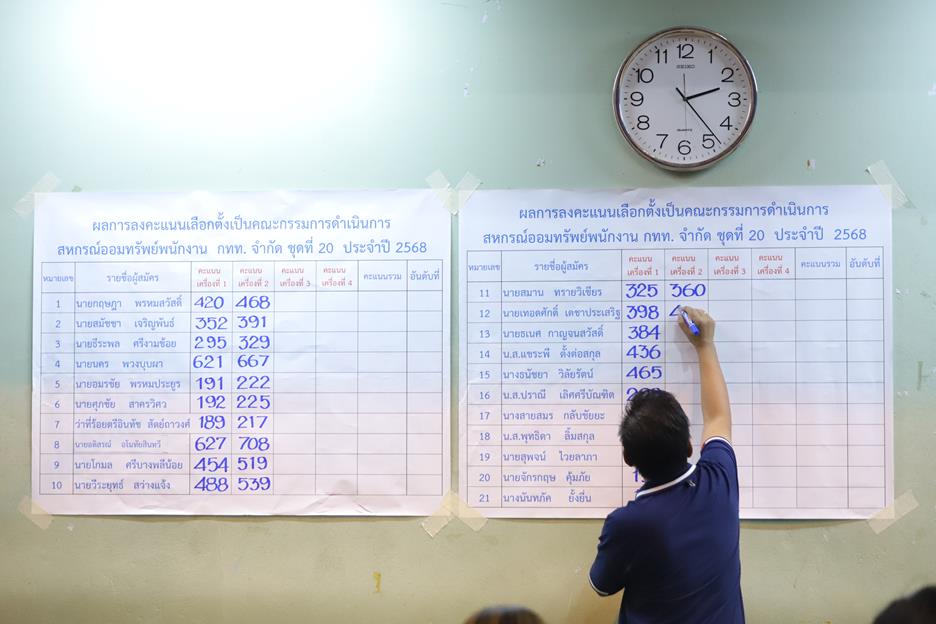 11 12 1
10 2
9 3
8 4
7 6 5
SEIKO
QUARTZ
ผลการลงคะแนนเลือกตั้งเป็นคณะกรรมการดำเนินการ
สหกรณ์ออมทรัพย์พนักงาน กทท. จำกัด ชุดที่ 20 ประจำปี 2568
หมายเลข รายชื่อผู้สมัคร คะแนน เครื่องที่ 1 คะแนน เครื่องที่ 2 คะแนน เครื่องที่ 3 คะแนน เครื่องที่ 4 คะแนนรวม อันดับที่
1 นายกฤษฎา พรหมสวัสดิ์ 420 468
2 นายสมัชชา เจริญพันธ์ 352 391
3 นายธีระพล ศรีงามช้อย 295 329
4 นายนคร พวงบุบผา 621 667
5 นายอมรชัย พรหมประยูร 191 222
6 นายศุภชัย สาครวิศว 192 225
7 ว่าที่ร้อยตรีอินทัช สัตย์ถาวงศ์ 189 217
8 นายอดิสรณ์ อโมทัยสินทวี 627 708
9 นายโกมล ศรีบางพลีน้อย 454 519
10 นายวีระยุทธ์ สว่างแจ้ง 488 539
ผลการลงคะแนนเลือกตั้งเป็นคณะกรรมการดำเนินการ
สหกรณ์ออมทรัพย์พนักงาน กทท. จำกัด ชุดที่ 20 ประจำปี 2568
หมายเลข รายชื่อผู้สมัคร คะแนน เครื่องที่ 1 คะแนน เครื่องที่ 2 คะแนน เครื่องที่ 3 คะแนน เครื่องที่ 4 คะแนนรวม อันดับที่
11 นายสมาน ทรายวิเชียร 325 360
12 นายเทอดศักดิ์ เดชาประเสริฐ 398 4
13 นายธเนศ กาญจนสวัสดิ์ 384
14 น.ส.แขระพี ตั้งต่อสกุล 436
15 นางธนัชยา วิลัยรัตน์ 465
16 น.ส.ปราณี เลิศศรีบัณฑิต
17 นางสายสมร กลับชัยยะ
18 น.ส.พุทธิดา ลิ้มสกุล
19 นายสุพจน์ ไวยลาภา
20 นายจักรกฤษ คุ้มภัย
21 นางนันทภัค ยั้งยืน